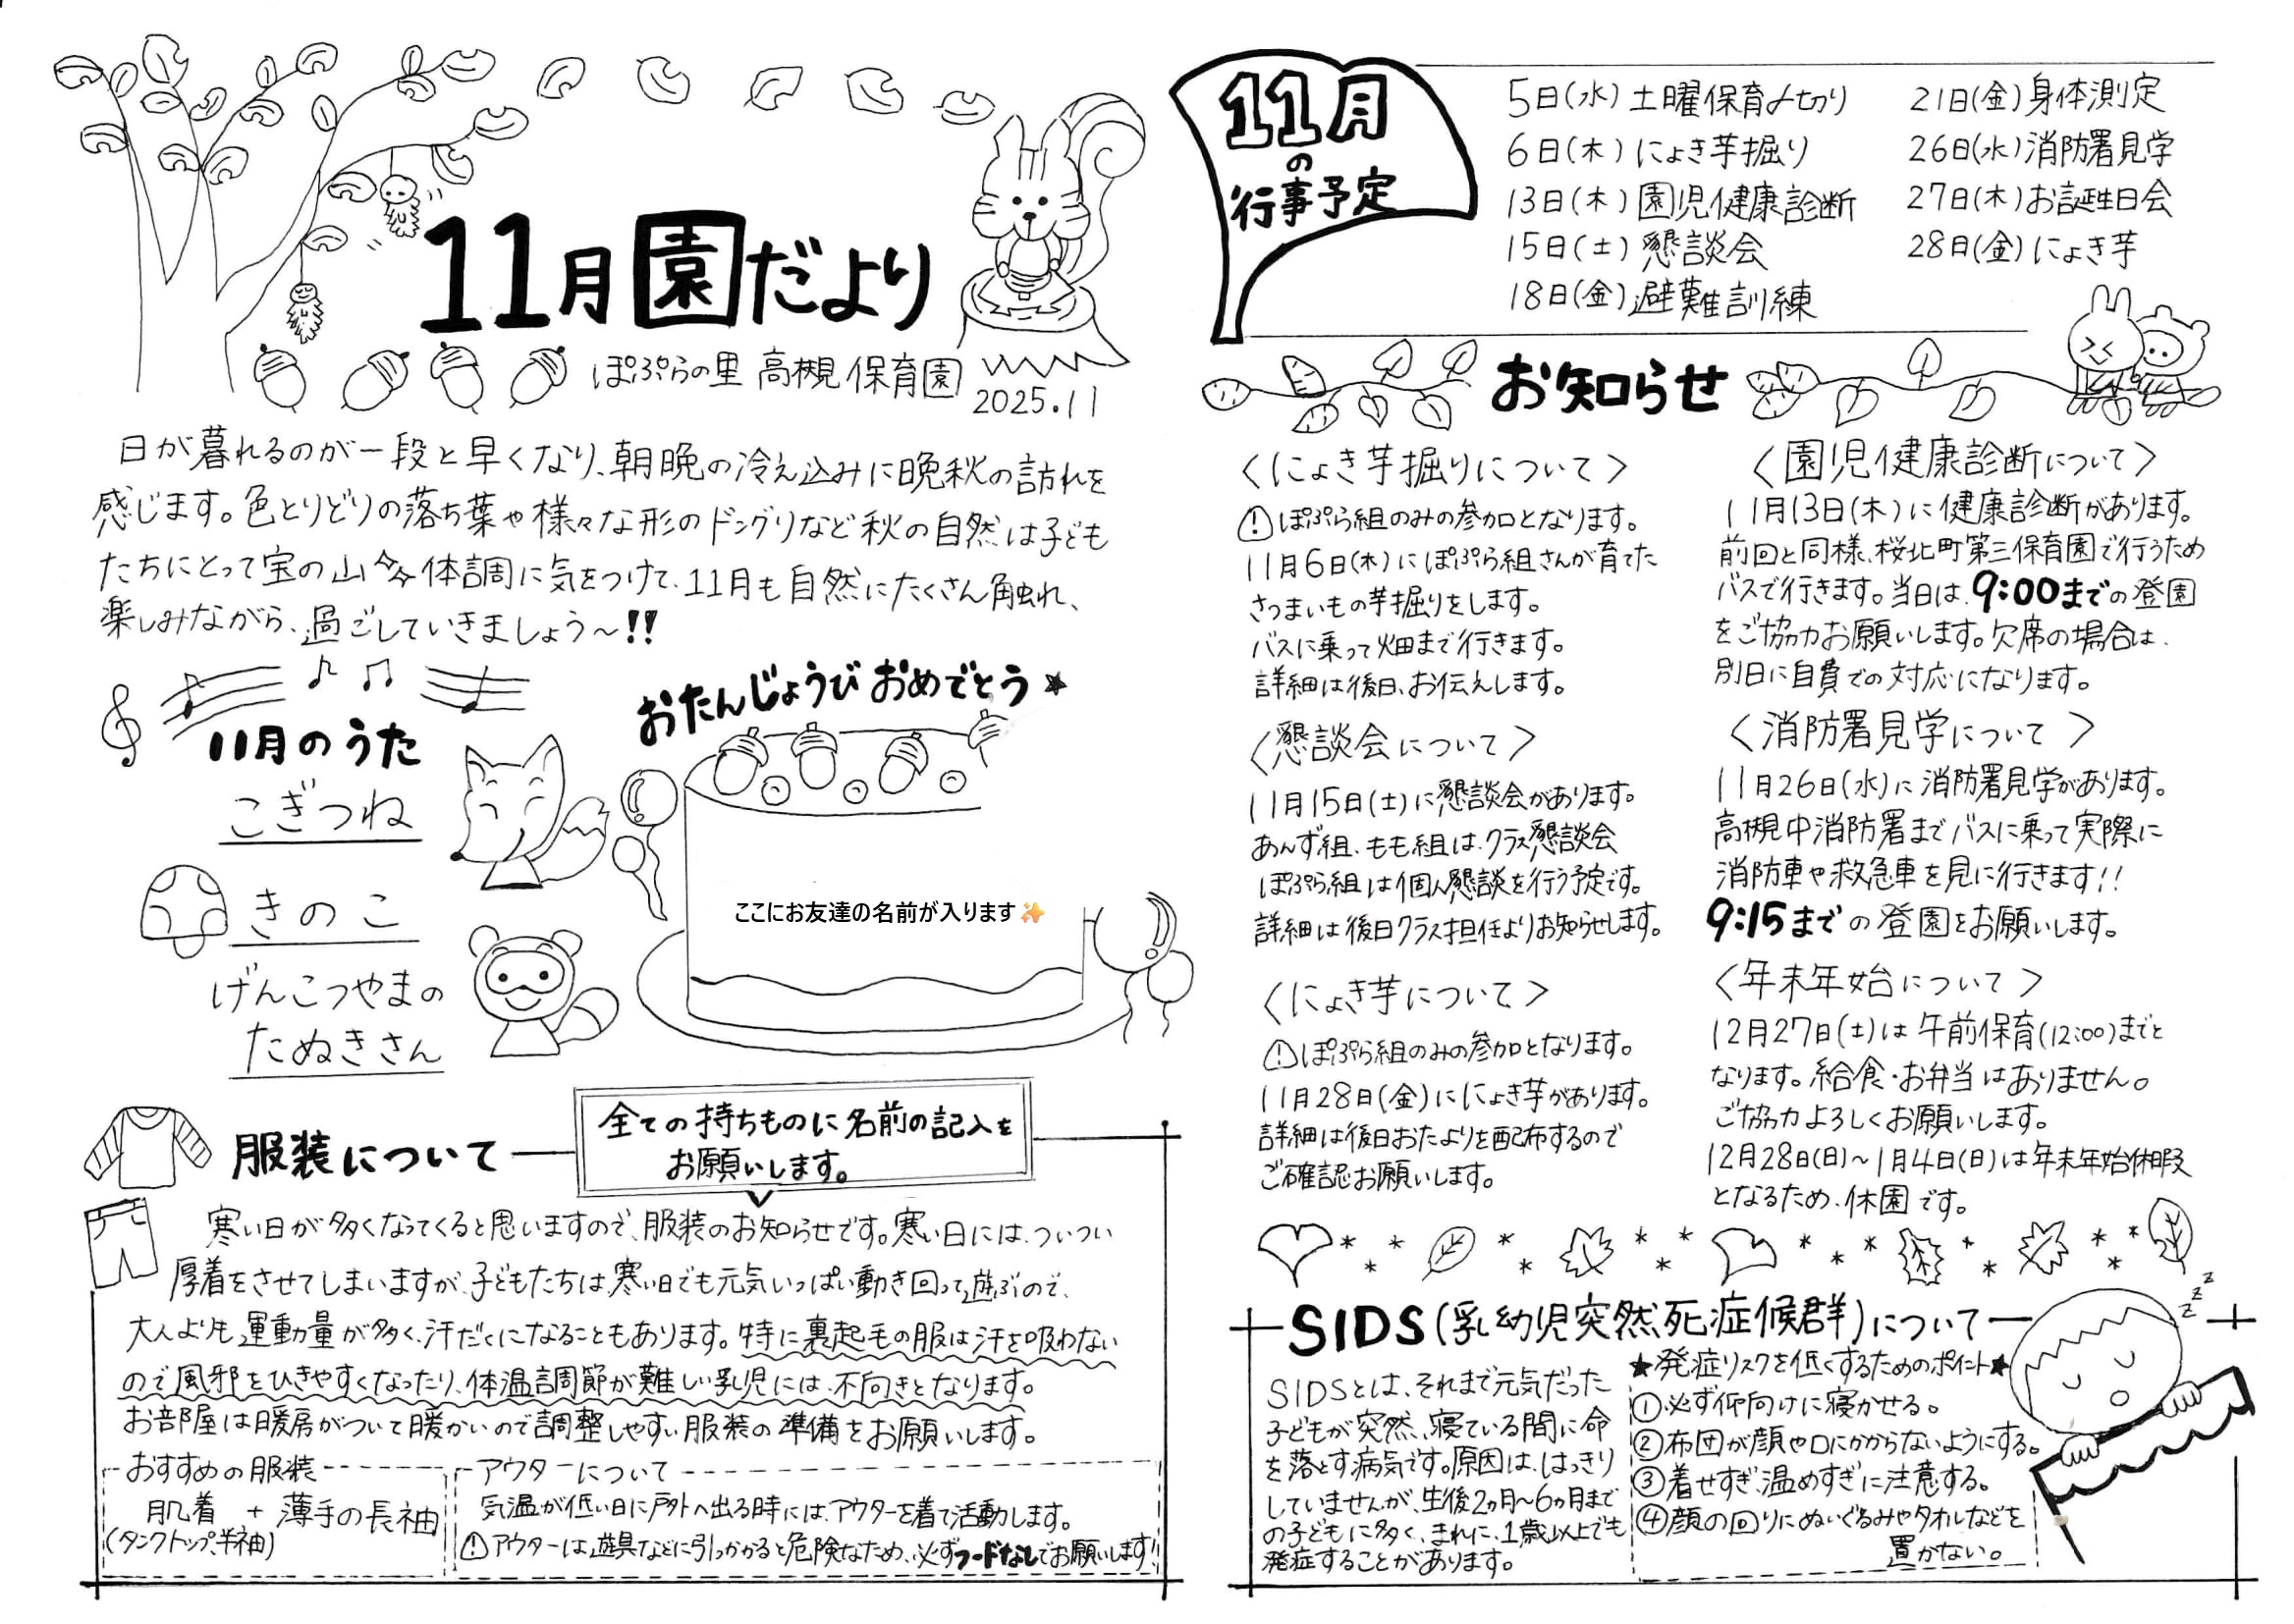 11月園だより
ぽぷらの里 高槻保育園
2025.11
日が暮れるのが一段と早くなり、朝晩の冷え込みに晩秋の訪れを
感じます。色とりどりの落ち葉や様々な形のドングリなど秋の自然は子ども
たちにとって宝の山✨体調に気をつけて、11月も自然にたくさん触れ、
楽しみながら、過ごしていきましょう〜!!
11月のうた
こぎつね
きのこ
げんこつやまの
たぬきさん
おたんじょうび おめでとう★
ここにお友達の名前が入ります✨
服装について
全ての持ちものに名前の記入を
お願いします。
寒い日が多くなってくると思いますので、服装のお知らせです。寒い日には、ついつい
厚着をさせてしまいますが、子どもたちは、寒い日でも元気いっぱい動き回って遊ぶので、
大人よりも運動量が多く、汗だくになることもあります。特に裏起毛の服は汗を吸わない
ので風邪をひきやすくなったり、体温調節が難しい乳児には、不向きとなります。
お部屋は暖房がついて暖かいので調整しやすい服装の準備をお願いします。
おすすめの服装
肌着 + 薄手の長袖
(タンクトップ、半袖)
アウターについて
気温が低い日に戸外へ出る時には、アウターを着て活動します。
⚠アウターは遊具などに引っかかると危険なため、必ずフードなしでお願いします!
11月
の
行事予定
5日(水) 土曜保育〆切り
6日(木) にょき芋掘り
13日(木) 園児健康診断
15日(土) 懇談会
18日(金) 避難訓練
21日(金) 身体測定
26日(水) 消防署見学
27日(木) お誕生日会
28日(金) にょき芋
お知らせ
〈にょき芋掘りについて〉
⚠ぽぷら組のみの参加となります。
11月6日(木)にぽぷら組さんが育てた
さつまいもの芋掘りをします。
バスに乗って畑まで行きます。
詳細は後日、お伝えします。
〈懇談会について〉
11月15日(土)に懇談会があります。
あんず組、もも組は、クラス懇談会
ぽぷら組は個人懇談を行う予定です。
詳細は後日クラス担任よりお知らせします。
〈にょき芋について〉
⚠ぽぷら組のみの参加となります。
11月28日(金)ににょき芋があります。
詳細は後日おたよりを配布するので
ご確認お願いします。
〈園児健康診断について〉
11月13日(木)に健康診断があります。
前回と同様、桜北町第三保育園で行うため
バスで行きます。当日は、9:00までの登園
をご協力お願いします。欠席の場合は、
別日に自費での対応になります。
〈消防署見学について〉
11月26日(水)に消防署見学があります。
高槻中消防署までバスに乗って実際に
消防車や救急車を見に行きます!!
9:15までの登園をお願いします。
〈年末年始について〉
12月27日(土)は午前保育(12:00)までと
なります。給食・お弁当はありません。
ご協力よろしくお願いします。
12月28日(日)〜1月4日(日)は年末年始休暇
となるため、休園です。
SIDS(乳幼児突然死症候群)について
SIDSとは、それまで元気だった
子どもが突然、寝ている間に命
を落とす病気です。原因は、はっきり
していませんが、生後2ヵ月〜6ヵ月まで
の子どもに多く、まれに、1歳以上でも
発症することがあります。
★発症リスクを低くするためのポイント★
①必ず仰向けに寝かせる。
②布団が顔や口にかからないようにする。
③着せすぎ、温めすぎに注意する。
④顔の回りにぬいぐるみやタオルなどを
置かない。
z
z
z